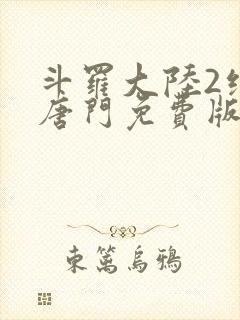 斗羅大陸2
唐門免費版
東篱烏鴉